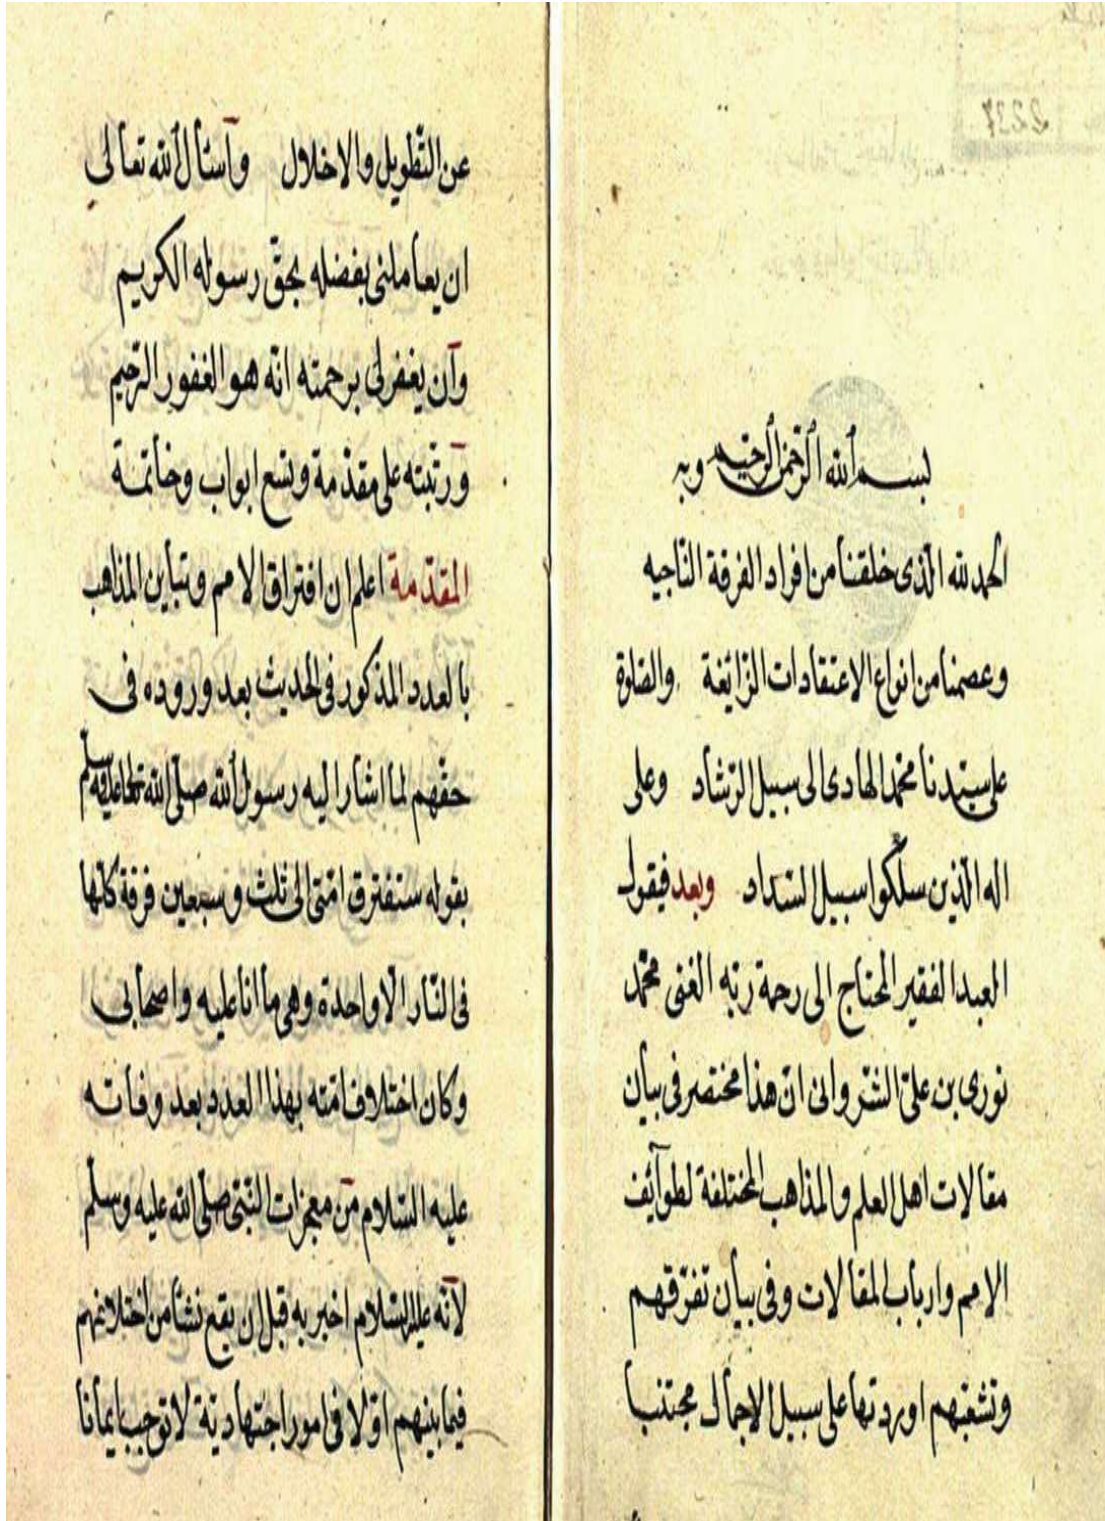 بسم الله الرحمن الرحيم وبه
الحمد لله الذى خلقنا من افراد الفرقة الناجيه
وعصمنا من انواع الاعتقادات الزائغة والصلوة
على سيدنا محمد الهادى الى سبيل الرشاد وعلى
اله الذين سلكوا سبيل السداد وبعد فيقول
العبد الفقير المحتاج الى رحمة ربه الغنى محمد
نورى بن على الشروانى ان هذا مختصر فى بيان
مقالات اهل العلم والمذاهب المختلفة لطوائف
الامم وارباب المقالات وفى بيان تفرقهم
وتشعبهم اوردتها على سبيل الاجمال مجتنبا
عن التطويل والاخلال وآسئال الله تعالى
ان يعاملنى بفضله بحق رسوله الكريم
وآن يغفر لى برحمته انه هو الغفور الرحيم
ورتبته على مقدمة وتسع ابواب وخاتمة
المقدمة اعلم ان افتراق الامم وتباين المذاهب
بالعدد المذكور فى الحديث بعد وروده فى
حقهم لما اشار اليه رسول الله صلى الله تعالى عليه وسلم
بقوله ستفترق امتى الى ثلث وسبعين فرقة كلها
فى النار الا واحدة وهى ما انا عليه واصحابى
وكان اختلاف امته بهذا العدد بعد وفاته
عليه السلام من معجزات النبى صلى الله عليه وسلم
لانه عليه السلام اخبر به قبل ان يقع نشأ من اختلافهم
فيما بينهم اولا فى امور اجتهادية لا توجب ايمانا